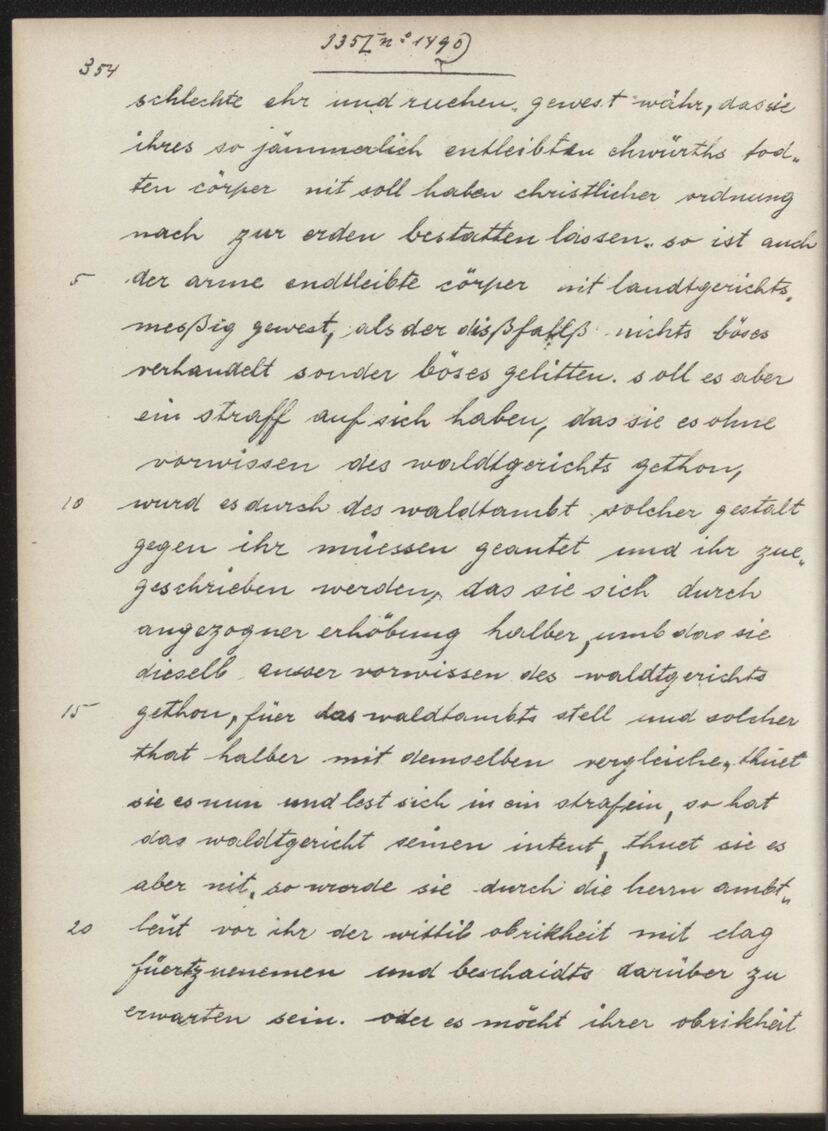 335 [nº 1490)
354
schlechte ehr und ruehen gewest währ, das sie
ihres so jämmerlich entleibten ehwürths tod„
ten cörper nit soll haben christlicher ordnung
nach zur erden bestatten lassen. so ist auch
5 der arme endtleibte cörper nit landtgerichts„
meßig gewest, als der dißfalß nichts böses
verhandelt sonder böses gelitten. soll es aber
ein straff auf sich haben, das sie es ohne
vorwissen des waldtgerichts gethon,
10 wurd es durch des waldtambt solcher gestalt
gegen ihr müessen geantet und ihr zue„
geschrieben werden, das sie sich durch
angezogner erhöbung halber, umb das sie
dieselb ausser vorwissen des waldtgerichts
15 gethon, füer das waldtambts stell und solcher
that halber mit demselben vergleiche„ thuet
sie es nun und lest sich in ein straf ein, so hat
das waldtgericht seinen intent, thuet sie es
aber nit, so wurde sie durch die herrn ambt„
20 leüt vor ihr der wittib obrikheit mit clag
füertzunemen und beschaidts darüber zu
erwarten sein. oder es möcht ihrer obrikheit